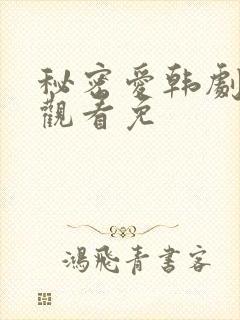 秘密愛韩劇
觀看免
鴻飛青書客